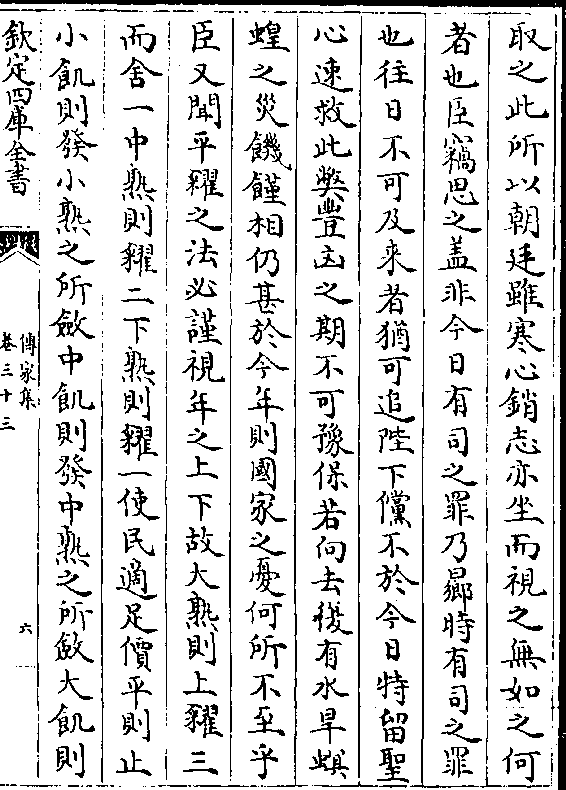 取之此所以朝廷雖寒心銷志亦坐而視之無如之何
者也臣竊思之盖非今日有司之罪乃曏時有司之罪
也往日不可及来者猶可追陛下儻不於今日特留聖
心速救此弊豐凶之期不可豫保若向去復有水旱螟
蝗之災饑饉相仍甚於今年則國家之憂何所不至乎
臣又聞平糴之法必謹視年之上下故大熟則上糴三
而舍一中熟則糴二下熟則糴一使民適足價平則止
小飢則發小熟之所斂中飢則發中熟之所斂大飢則
欽定四庫全書
傳家集
卷三十三
六